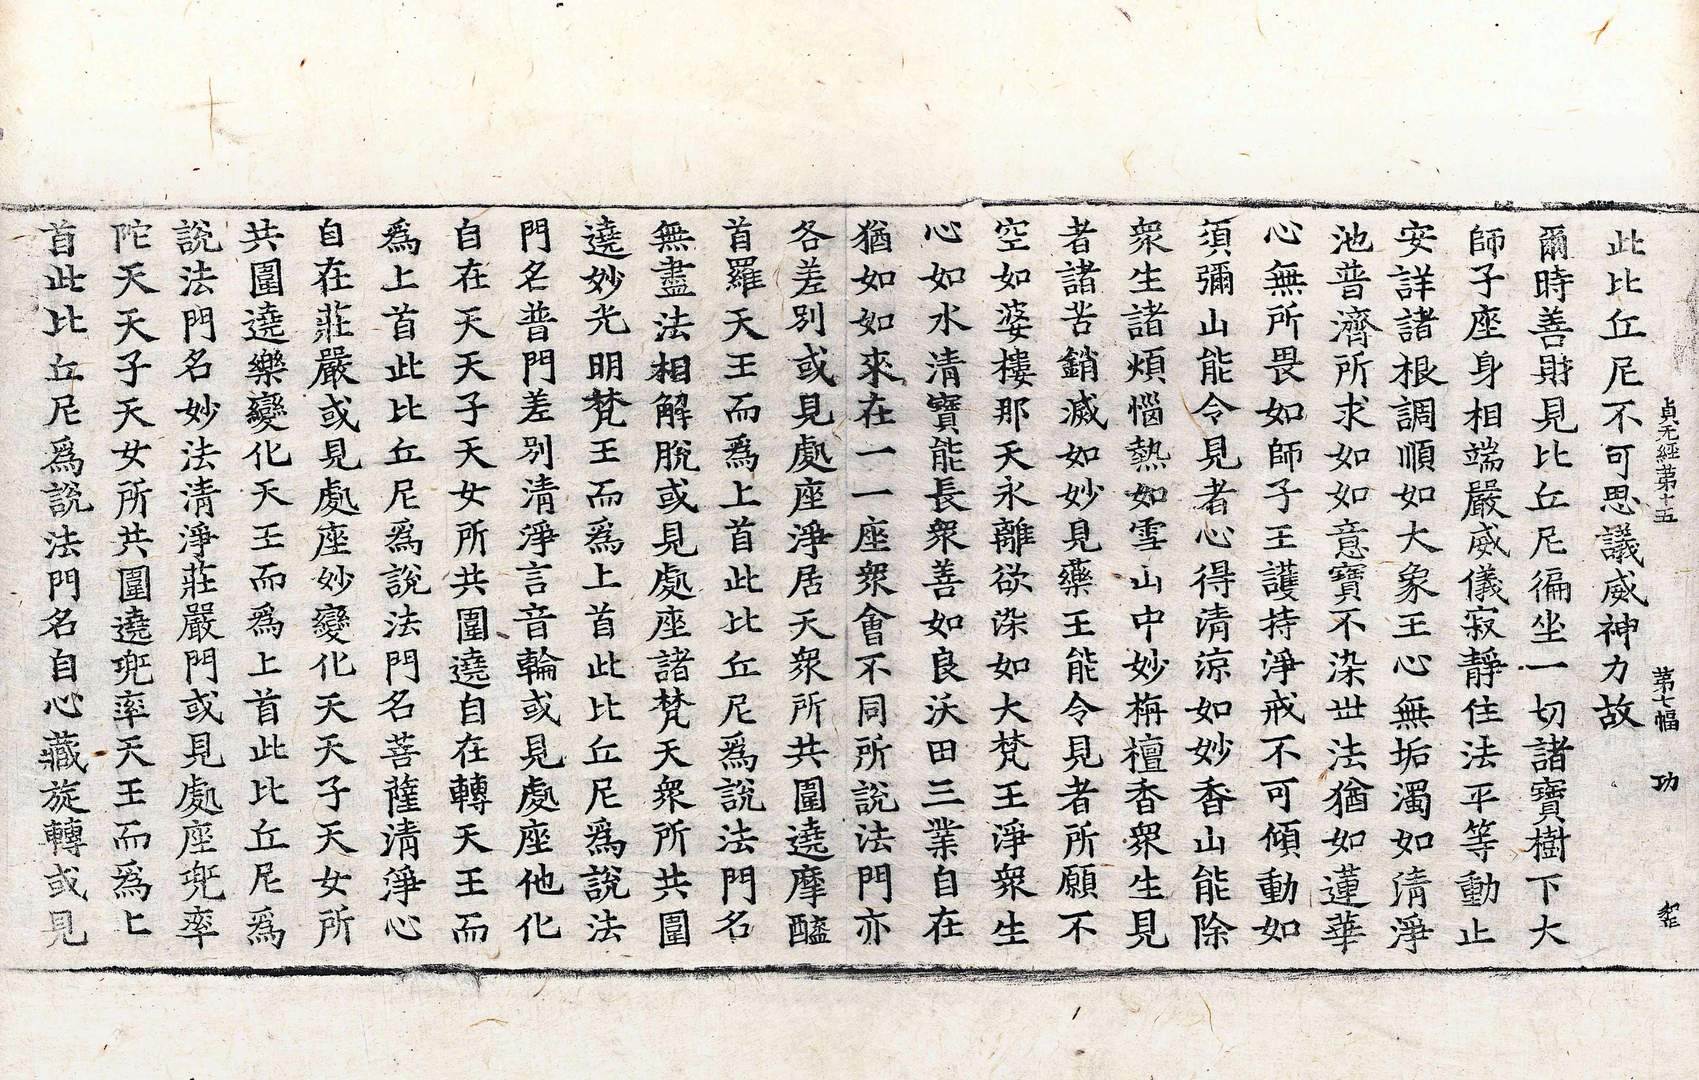 貞元經第十五 第七幅 功
此比丘尼不可思議威神力故
爾時善財見比丘尼徧坐一切諸寶樹下大
師子座身相端嚴威儀寂靜住法平等動止
安詳諸根調順如大象王心無垢濁如清淨
池普濟所求如如意寶不染世法猶如蓮華
心無所畏如師子王護持淨戒不可傾動如
須彌山能令見者心得清涼如妙香山能除
衆生諸煩惱熱如雪山中妙栴檀香衆生見
者諸苦銷滅如妙見藥王能令見者所願不
空如婆樓那天永離欲染如大梵王淨衆生
心如水清寶能長衆善如良沃田三業自在
猶如如來在一一座衆會不同所說法門亦
各差別或見處座淨居天衆所共圍遶摩醯
首羅天王而爲上首此比丘尼爲說法門名
無盡法相解脫或見處座諸梵天衆所共圍
遶妙光明梵王而爲上首此比丘尼爲說法
門名普門差別清淨言音輪或見處座他化
自在天天子天女所共圍遶自在轉天王而
爲上首此比丘尼爲說法門名菩薩清淨心
自在莊嚴或見處座妙變化天天子天女所
共圍遶樂變化天王而爲上首此比丘尼爲
說法門名妙法清淨莊嚴門或見處座兜率
陀天天子天女所共圍遶兜率天王而爲上
首此比丘尼爲說法門名自心藏旋轉或見